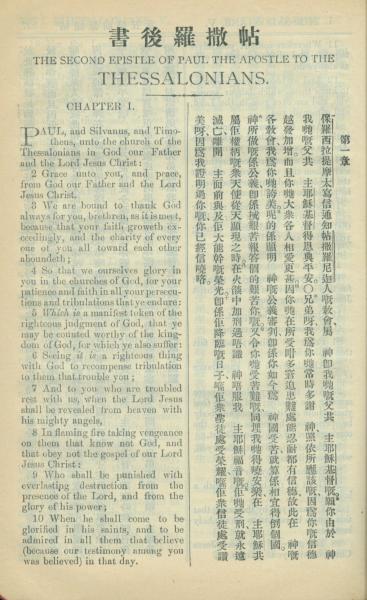 帖撒羅後書
THE SECOND EPISTLE OF PAUL THE APOSTLE TO THE
THESSALONIANS.
CHAPTER I.
PAUL, and Silvanus, and Timo-
theus, unto the church of the
Thessalonians in God our Father
and the Lord Jesus Christ:
2 Grace unto you, and peace,
from God our Father and the Lord
Jesus Christ.
3 We are bound to thank God
always for you, brethren, as it is meet,
because that your faith groweth ex-
ceedingly, and the charity of every
one of you all toward each other
aboundeth;
4 So that we ourselves glory in
you in the churches of God, for your
patience and faith in all your persecu-
tions and tribulations that ye endure:
5 Which is a manifest token of the
righteous judgment of God, that ye
may be counted worthy of the king-
dom of God, for which ye also suffer:
6 Seeing it is a righteous thing
with God to recompense tribulation
to them that trouble you;
7 And to you who are troubled
rest with us, when the Lord Jesus
shall be revealed from heaven with
his mighty angels,
8 In flaming fire taking vengeance
on them that know not God, and
that obey not the gospel of our Lord
Jesus Christ:
9 Who shall be punished with
everlasting destruction from the
presence of the Lord, and from the
glory of his power;
10 When he shall come to be
glorified in his saints, and to be
admired in all them that believe
(because our testimony among you
was believed) in that day.
第一章
保羅西拉提摩太寫信通知帖撒羅尼迦人嘅教會屬 神卽我哋嘅父共 主耶穌基督嘅願你由於 神
我哋嘅父共 主耶穌基督得恩典平安○兄弟呀我爲你哋常時多謝 神照依所應該嘅因爲你哋信德
越發加增而且你哋大衆各人相愛更甚因你哋在所受咁多窘迫患難處能忍耐都有信德故此在 神嘅
各教會我爲你哋誇美呢的係顯明 神嘅公義審判卽係你如今爲 神國受苦就算係相宜得倒個國
神所做嘅係公義卽係艱苦報答個的難爲你嘅又令你哋受苦難嘅同埋我哋得安樂在 主耶穌共
屬佢權柄嘅衆天使從天顯現之時在火燄中加刑過唔識 神唔服我 主耶穌福音嘅佢哋受刑就永遠
滅亡離開 主面前與及佢大能幹嘅榮光卽係佢降臨嘅日子喺佢衆聖徒處受榮耀喺佢衆信徒處受讚
美呀因爲我證明過你嘅你已經信嘵咯